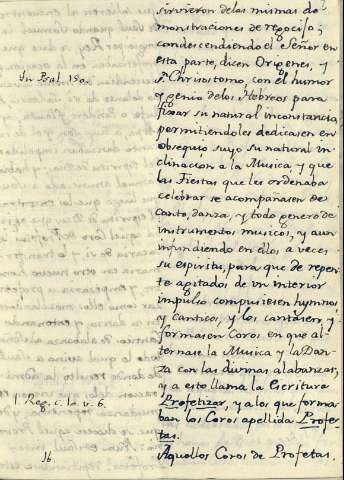 sirvieron de las mismas de
monstraciones de regocijo;
condescendiendo el Señor en
esta parte, dicen Origenes, y
In Psal. 150.
S. Chrisostomo, con el humor
y genio de los Hebreos para
fixar su natural inconstancia
permitiendoles dedicasen en
obsequio suyo su natural in
clinacion a la Musica, y que
las Fiestas que les ordenaba
celebrar se acompañasen de
Canto, danza, y todo genero de
instrumentos musicos, y aun
infundiendo en ellos a veces
su espiritu, para que de repen
te agitados de un interior
impulso compusiesen hymnos
y canticos, y los cantasen, y
formasen Coros en que al
ternase la Musica y la Dan
za con las divinas alabanzas,
y a esto llama la Escritura
1 Reg. c. 10. v. 6.
Profetizar, y a los que forma
ban los Coros apellida Profe
tas.
16
Aquellos Coros de Profetas.